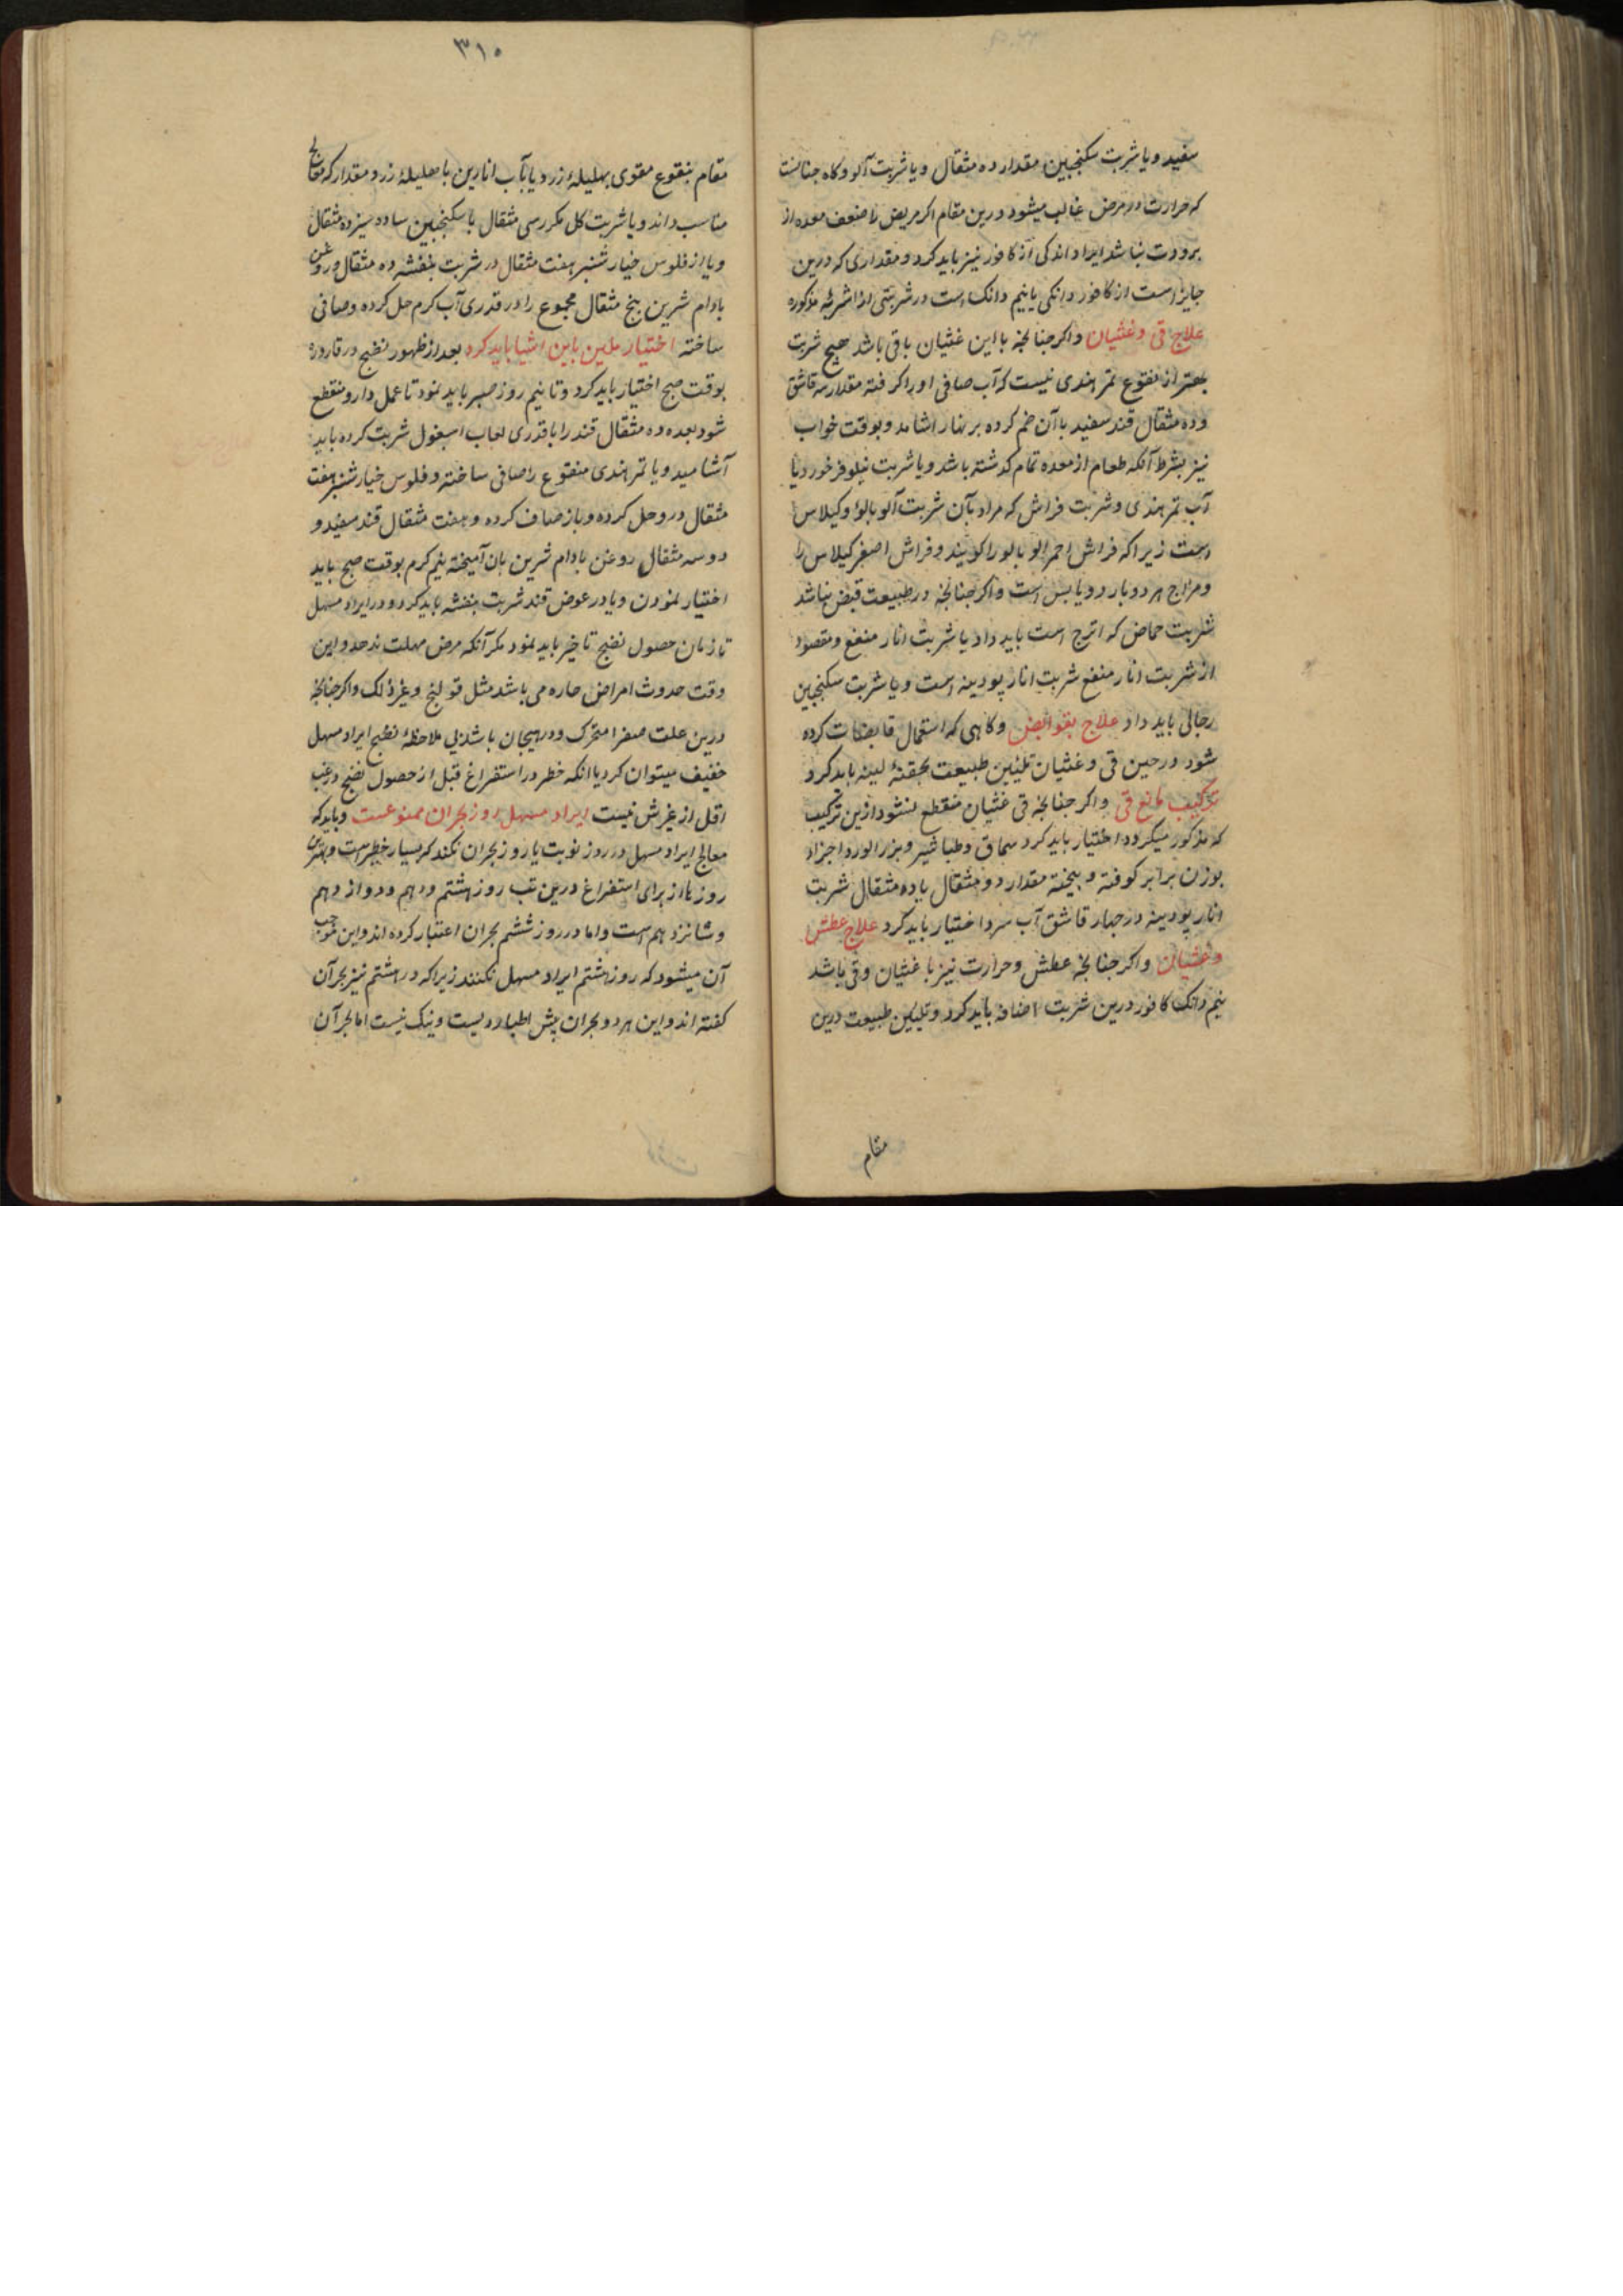 سفید و یا شربت سکنجبین مقدار ده مثقال و یا شربت آلو و کاه جنانست
که حرارت در مرض غالب میشود درین مقام اکر مریض را ضعف معده از
برودت نباشد ایراد اندکی از کافور نیز باید کرد و مقداری که درین
جایز است از کافور دانکی یا نیم دانک است در شربتی از اشربهٔ مذکوره
علاج قی و غثیان و اکر جنانجه با این غثیان باقی باشد هیچ شربت
بهتر از نقوع تمر هندی نیست که آب صافی او را کرفته مقدار سه قاشق
و ده مثقال قند سفید با آن ضم کرده بر نهار اشامد و بوقت خواب
نیز بشرط آنکه طعام از معده تمام کذشته باشد و یا شربت نیلوفر خورد یا
آب تمر هندی و شربت فراش که مراد بآن شربت آلو بالو و کیلاس
است زیرا که فراش احمر الو بالو را کویند و فراش اصفر کیلاس را
و مزاج هر دو بارد و یابس است و اکر جنانجه در طبیعت قبض نباشد
شربت حماض که اترج است باید داد یا شربت انار منعنع و مقصود
از شربت انار منعنع شربت انار پودینه است و یا شربت سکنجبین
رجالی باید داد علاج بقوابض و کاهی که استعمال قابضات کرده
شود در حین قی و غثیان تلیین طبیعت بحقنهٔ لینه باید کرد
ترکیب مانع قی و اکر جنانجه قی غثیان منقطع نشود ازین ترکیب
که مذکور میکردد اختیار باید کرد سماق و طباشیر و بزر الورد اجزاء
بوزن برابر کوفته و بیخته مقدار دو مثقال با ده مثقال شربت
انار پودینه در جهار قاشق آب سرد اختیار باید کرد علاج عطش
و غثیان و اکر جنانجه عطش و حرارت نیز با غثیان و قی باشد
نیم دانک کافور درین شربت اضافه باید کرد و تلیین طبیعت درین
مقام
۳۱۰
مقام بنقوع مقوی بهلیلهٔ زرد یا بآب انارین با هلیلهٔ زرد مقدار که معالج
مناسب داند و یا شربت کل مکرر سی مثقال با سکنجبین ساده سیزده مثقال
و یا از فلوس خیار شنبر هفت مثقال در شربت بنفشه ده مثقال و روغن
بادام شرین پنج مثقال مجموع را در قدری آب کرم حل کرده و صافی
ساخته اختیار ملین باین اشیا باید کرد بعد از ظهور نضج در قاروره
بوقت صبح اختیار باید کرد و تا نیم روز صبر باید نمود تا عمل دارو منقطع
شود بعده ده مثقال قند را با قدری لعاب اسبغول شربت کرده باید
آشامید و یا تمر هندی منقوع را صافی ساخته و فلوس خیار شنبر هفت
مثقال در و حل کرده و باز صاف کرده و هفت مثقال قند سفید و
دو سه مثقال روغن بادام شرین بان آمیخته نیم کرم بوقت صبح باید
اختیار نمودن و یا در عوض قند شربت بنفشه باید کرد و در ایراد مسهل
تا زمان حصول نضج تاخیر باید نمود مکر آنکه مرض مهلت ندهد و این
وقت حدوث امراض حاره می باشد مثل قولنج و غیر ذلک و اکر جنانجه
درین علت صفرا متحرک و در هیجان باشد بی ملاحظهٔ نضج ایراد مسهل
خفیف میتوان کرد یا انکه خطر در استفراغ قبل از حصول نضج در غب
اقل از غیرش نیست ایراد مسهل روز بحران ممنوعست و باید که
معالج ایراد مسهل در روز نوبت یا روز بحران نکند که بسیار خطیر است و بهترین
روزها از برای استفراغ درین تب روز هشتم و دهم و دوازدهم
و شانزدهم است و اما در روز ششم بحران اعتبار کرده اند و این موجب
آن میشود که روز هشتم ایراد مسهل نکنند زیرا که در هشتم نیز بحرآن
کفته اند و این هر دو بحران پیش اطبا ردیست و نیک نیست اما بحرآن